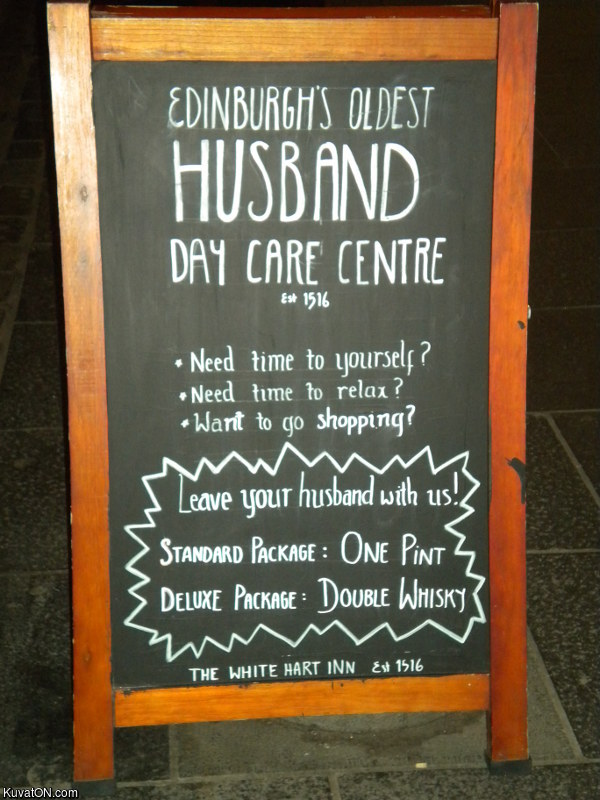 EDINBURGH'S OLDEST
HUSBAND
DAY CARE CENTRE
Est 1516
* Need time to yourself?
* Need time to relax?
* Want to go shopping?
Leave your husband with us!
STANDARD PACKAGE: ONE PINT
DELUXE PACKAGE: DOUBLE WHISKY
THE WHITE HART INN Est 1516
KuvatON.com